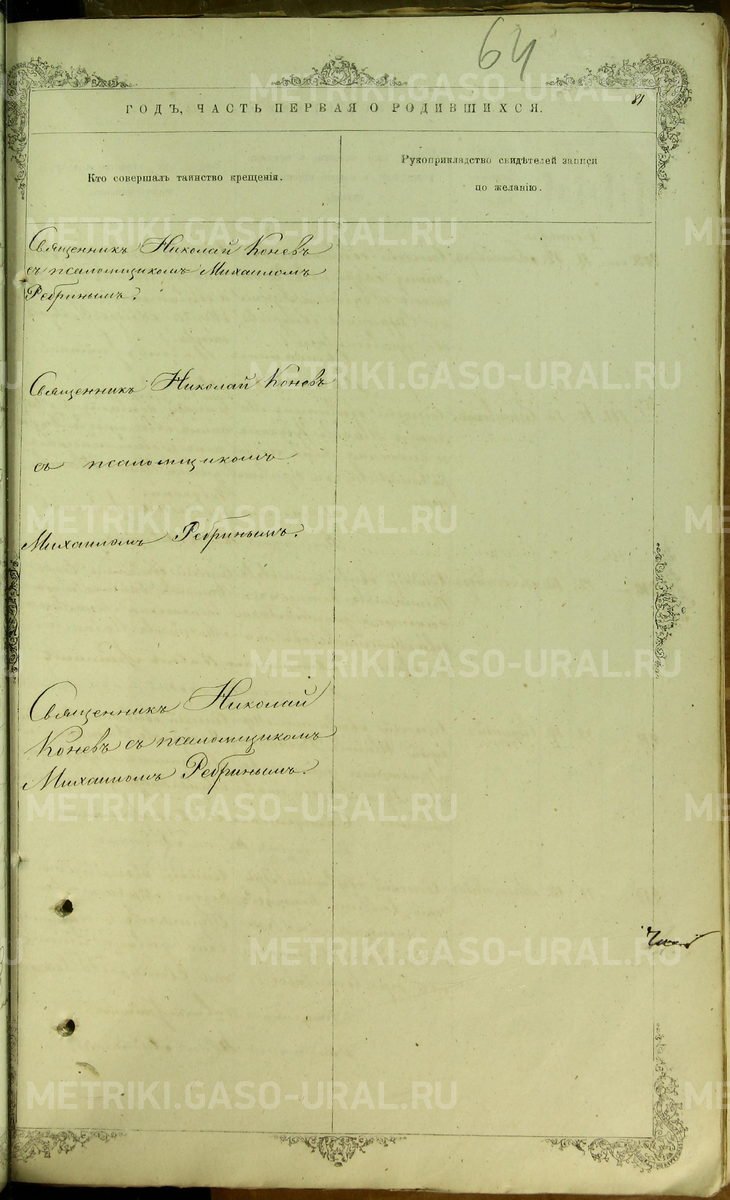 64
81
ГОДЪ, ЧАСТЬ ПЕРВАЯ О РОДИВШИХСЯ.
Кто совершалъ таинство крещенія.
Рукоприкладство свидѣтелей записи
по желанію.
Священникъ Николай Коневъ
съ псаломщикомъ Михаиломъ
Ребринымъ.
Священникъ Николай Коневъ
съ псаломщикомъ
Михаиломъ Ребринымъ.
Священникъ Николай
Коневъ съ псаломщикомъ
Михаиломъ Ребринымъ.
METRIKI.GASO-URAL.RU